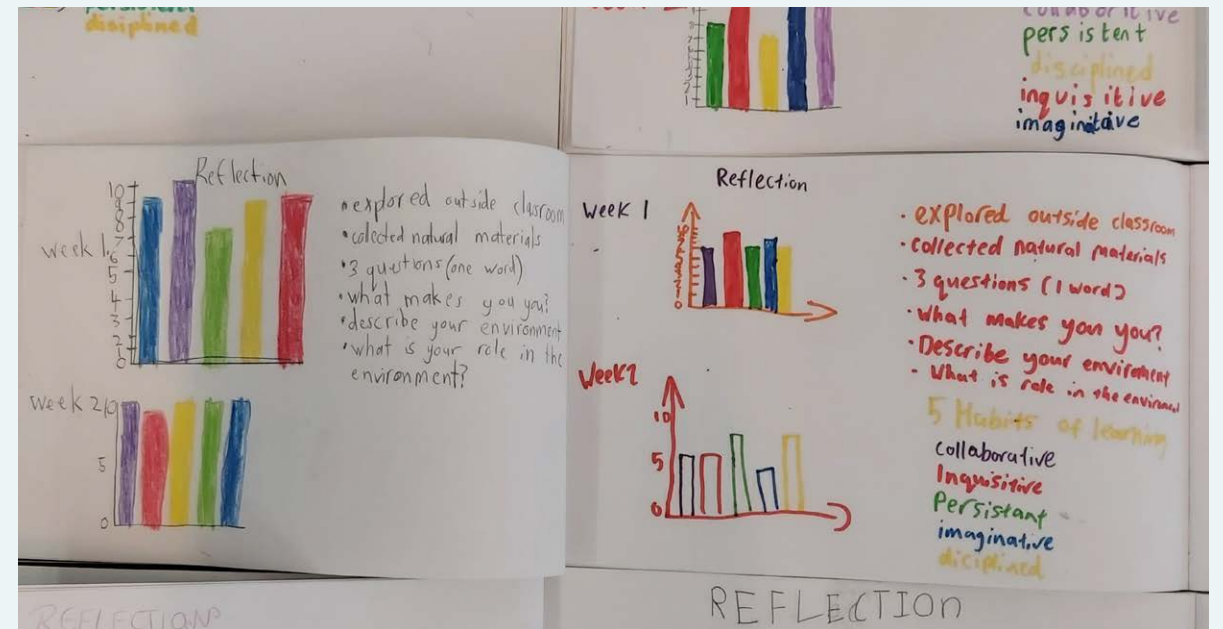 disiplined
persistent
disciplined
inquisitive
imaginitaive
Reflection
Week 1
10
9
8
7
6
5
4
3
2
1
0
• explored outside clasroom
• colected natural materials
• 3 questions (one word)
• what makes you you?
• describe your environment
• what is your role in the
environment?
Week 2
10
5
0
Reflection
Week 1
0
• explored outside classroom
• collected natural materials
• 3 questions (1 word)
• What makes you you?
• Describe your enviroment
• What is role in the enviroment
Week 2
10
5
0
5 Habits of learning
Collaborative
Inquisitive
Persistant
imaginative
diciplined
REFLECTION
REFLECTION